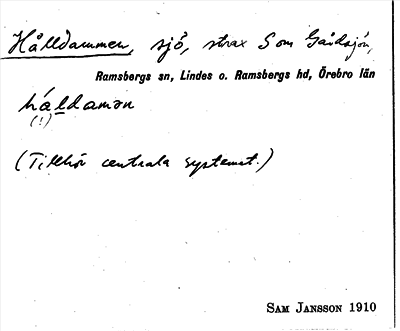 Hålldammen, sjö, strax S om Gårdsjön,
Ramsbergs sn, Lindes o. Ramsbergs hd, Örebro län
hál̲damən
(!)
(Tillhör centrala systemet.)
SAM JANSSON 1910